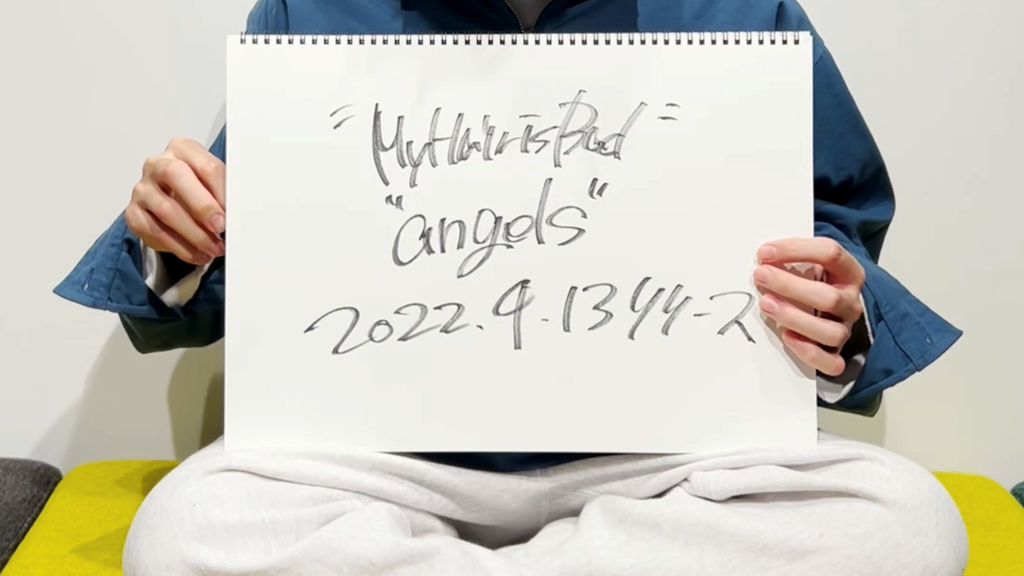 "My Hair is Bad"
"angels"
2022.4.13リリース